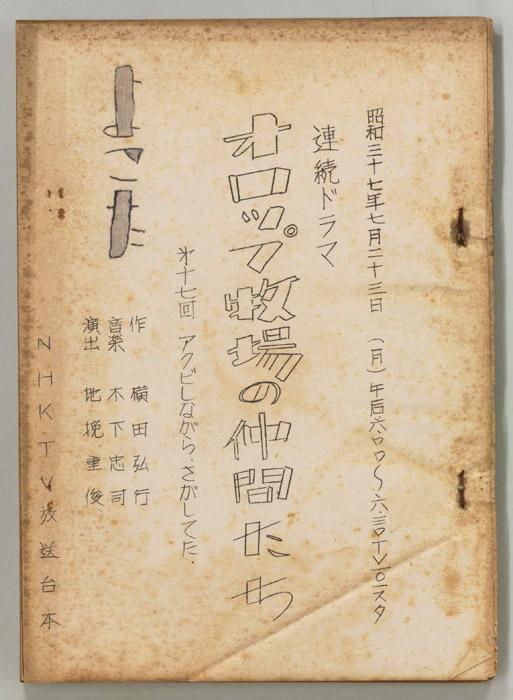 昭和三十七年七月二十三日 (月) 午后六.〇〇〜六.三〇 TV一〇一スタ
連続ドラマ
オロップ牧場の仲間たち
才十七回 アクビしながら、さがしてた.
作 横田弘行
音楽 木下忠司
演出 地挽重俊
NHKTV放送台本